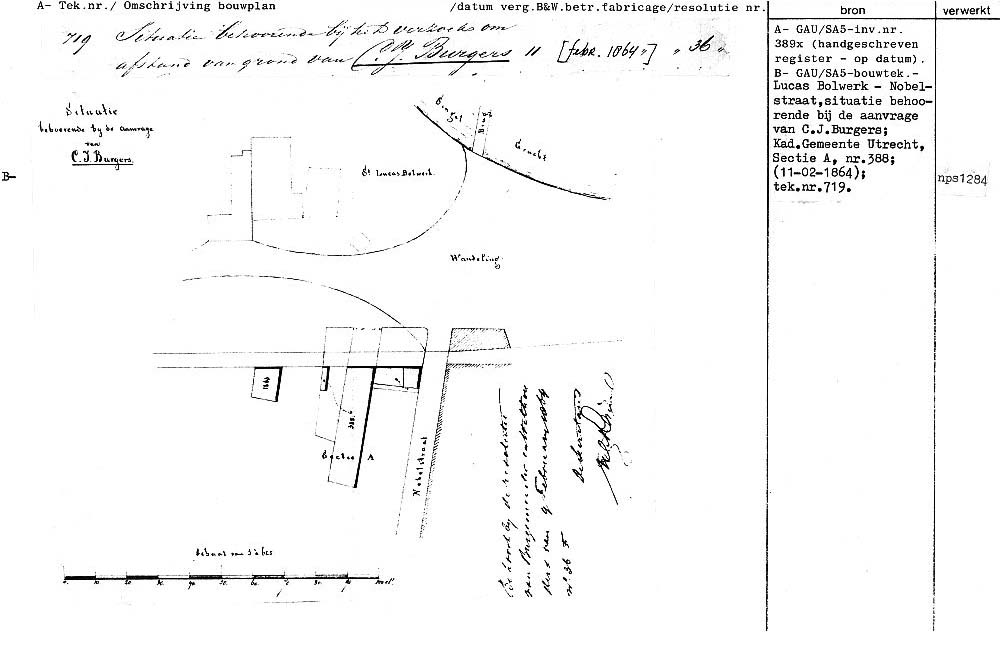 A- Tek.nr./ Omschrijving bouwplan /datum verg.B&W.betr.fabricage/resolutie nr.
bron
verwerkt
719 Situatie behoorende bij het verzoek om
afstand van grond van C.J. Burgers 11 [febr. 1864] „ 36 „
B-
Situatie
behoorende by de aanvrage
van
C. J. Burgers.
Singel
Gracht
St Lucas Bolwerk.
Wandeling
1266
388
Sectie A
Nobelstraat
Schaal van
Behoort by de resolutie
van Burgemeester en Wethou
ders van 9 Februarij 1864
no. 36 F
De Secretaris
A- GAU/SA5-inv.nr.
389x (handgeschreven
register - op datum).
B- GAU/SA5-bouwtek.-
Lucas Bolwerk - Nobel-
straat,situatie behoo-
rende bij de aanvrage
van C.J.Burgers;
Kad.Gemeente Utrecht,
Sectie A, nr.388;
(11-02-1864);
tek.nr.719.
nps1284